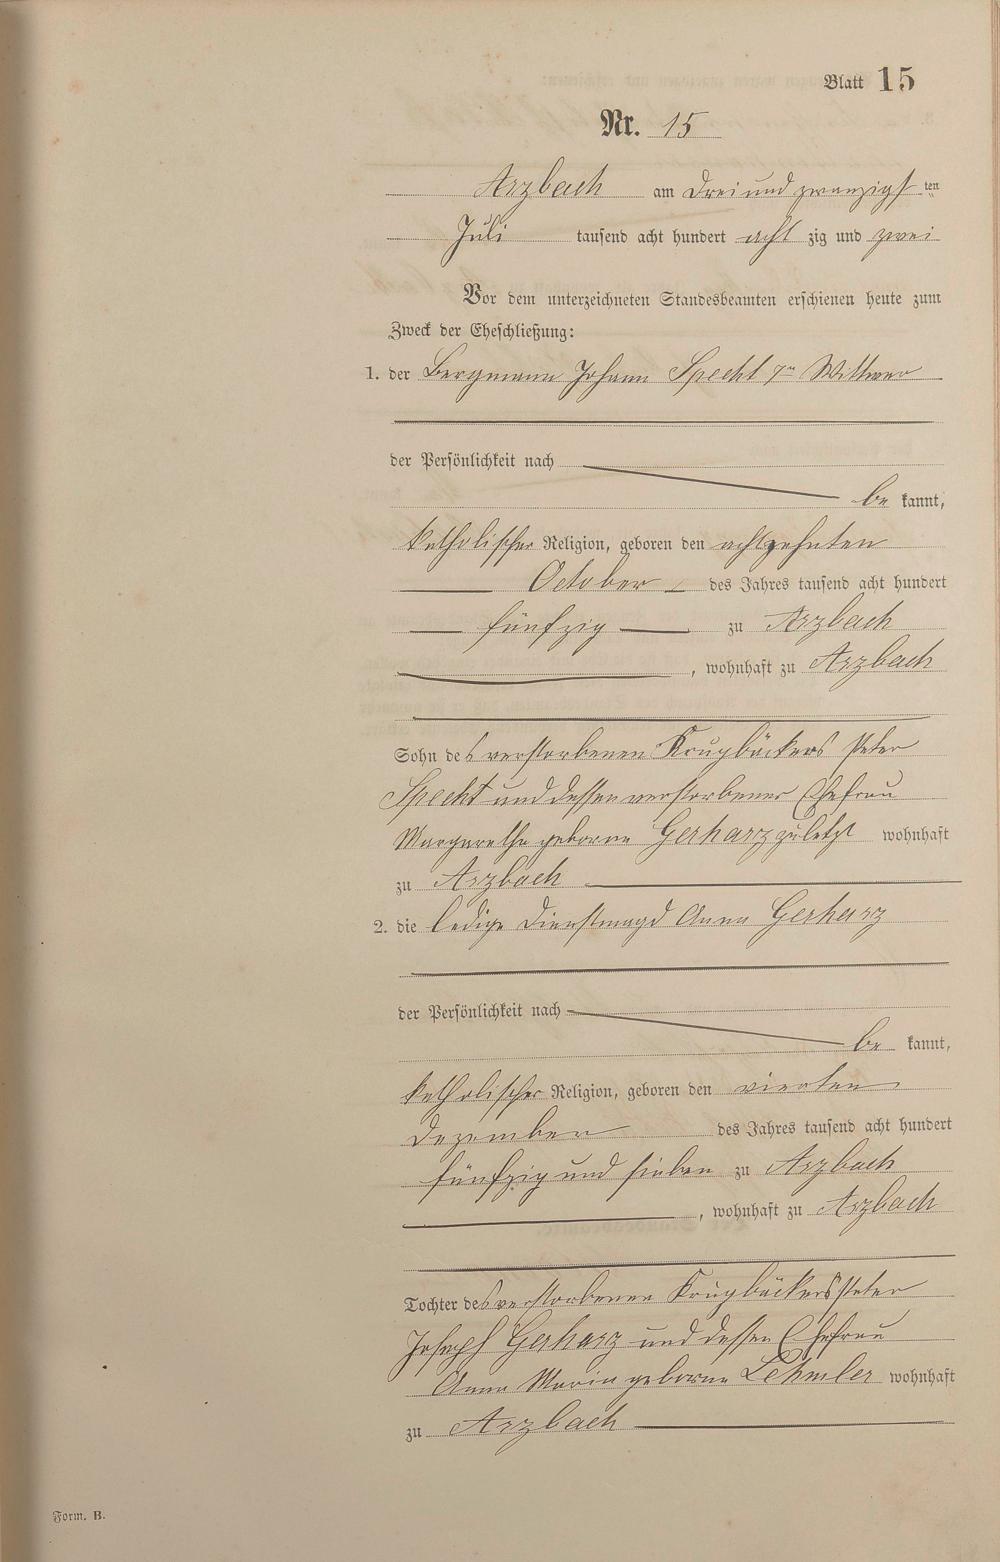 Blatt 15
Nr. 15
Arzbach am Dreiundzwanzigsten
Juli tausend acht hundert acht zig und zwei
Vor dem unterzeichneten Standesbeamten erschienen heute zum
Zweck der Eheschließung:
1. der Bergmann Johann Specht 7r Wittwer
der Persönlichkeit nach
be kannt,
katholischer Religion, geboren den achtzehnten
October des Jahres tausend acht hundert
fünfzig zu Arzbach
, wohnhaft zu Arzbach
Sohn des verstorbenen Krugbäckers Peter
Specht und dessen verstorbener Ehefrau
Margarethe geborne Gerharz zuletzt wohnhaft
zu Arzbach
2. die ledige Dienstmagd Anna Gerharz
der Persönlichkeit nach
be kannt,
katholischer Religion, geboren den vierten
Dezember des Jahres tausend acht hundert
fünfzig und sieben zu Arzbach
, wohnhaft zu Arzbach
Tochter des verstorbenen Krugbäckers Peter
Joseph Gerharz und dessen Ehefrau
Anna Maria geborne Lehmler wohnhaft
zu Arzbach
Form. B.